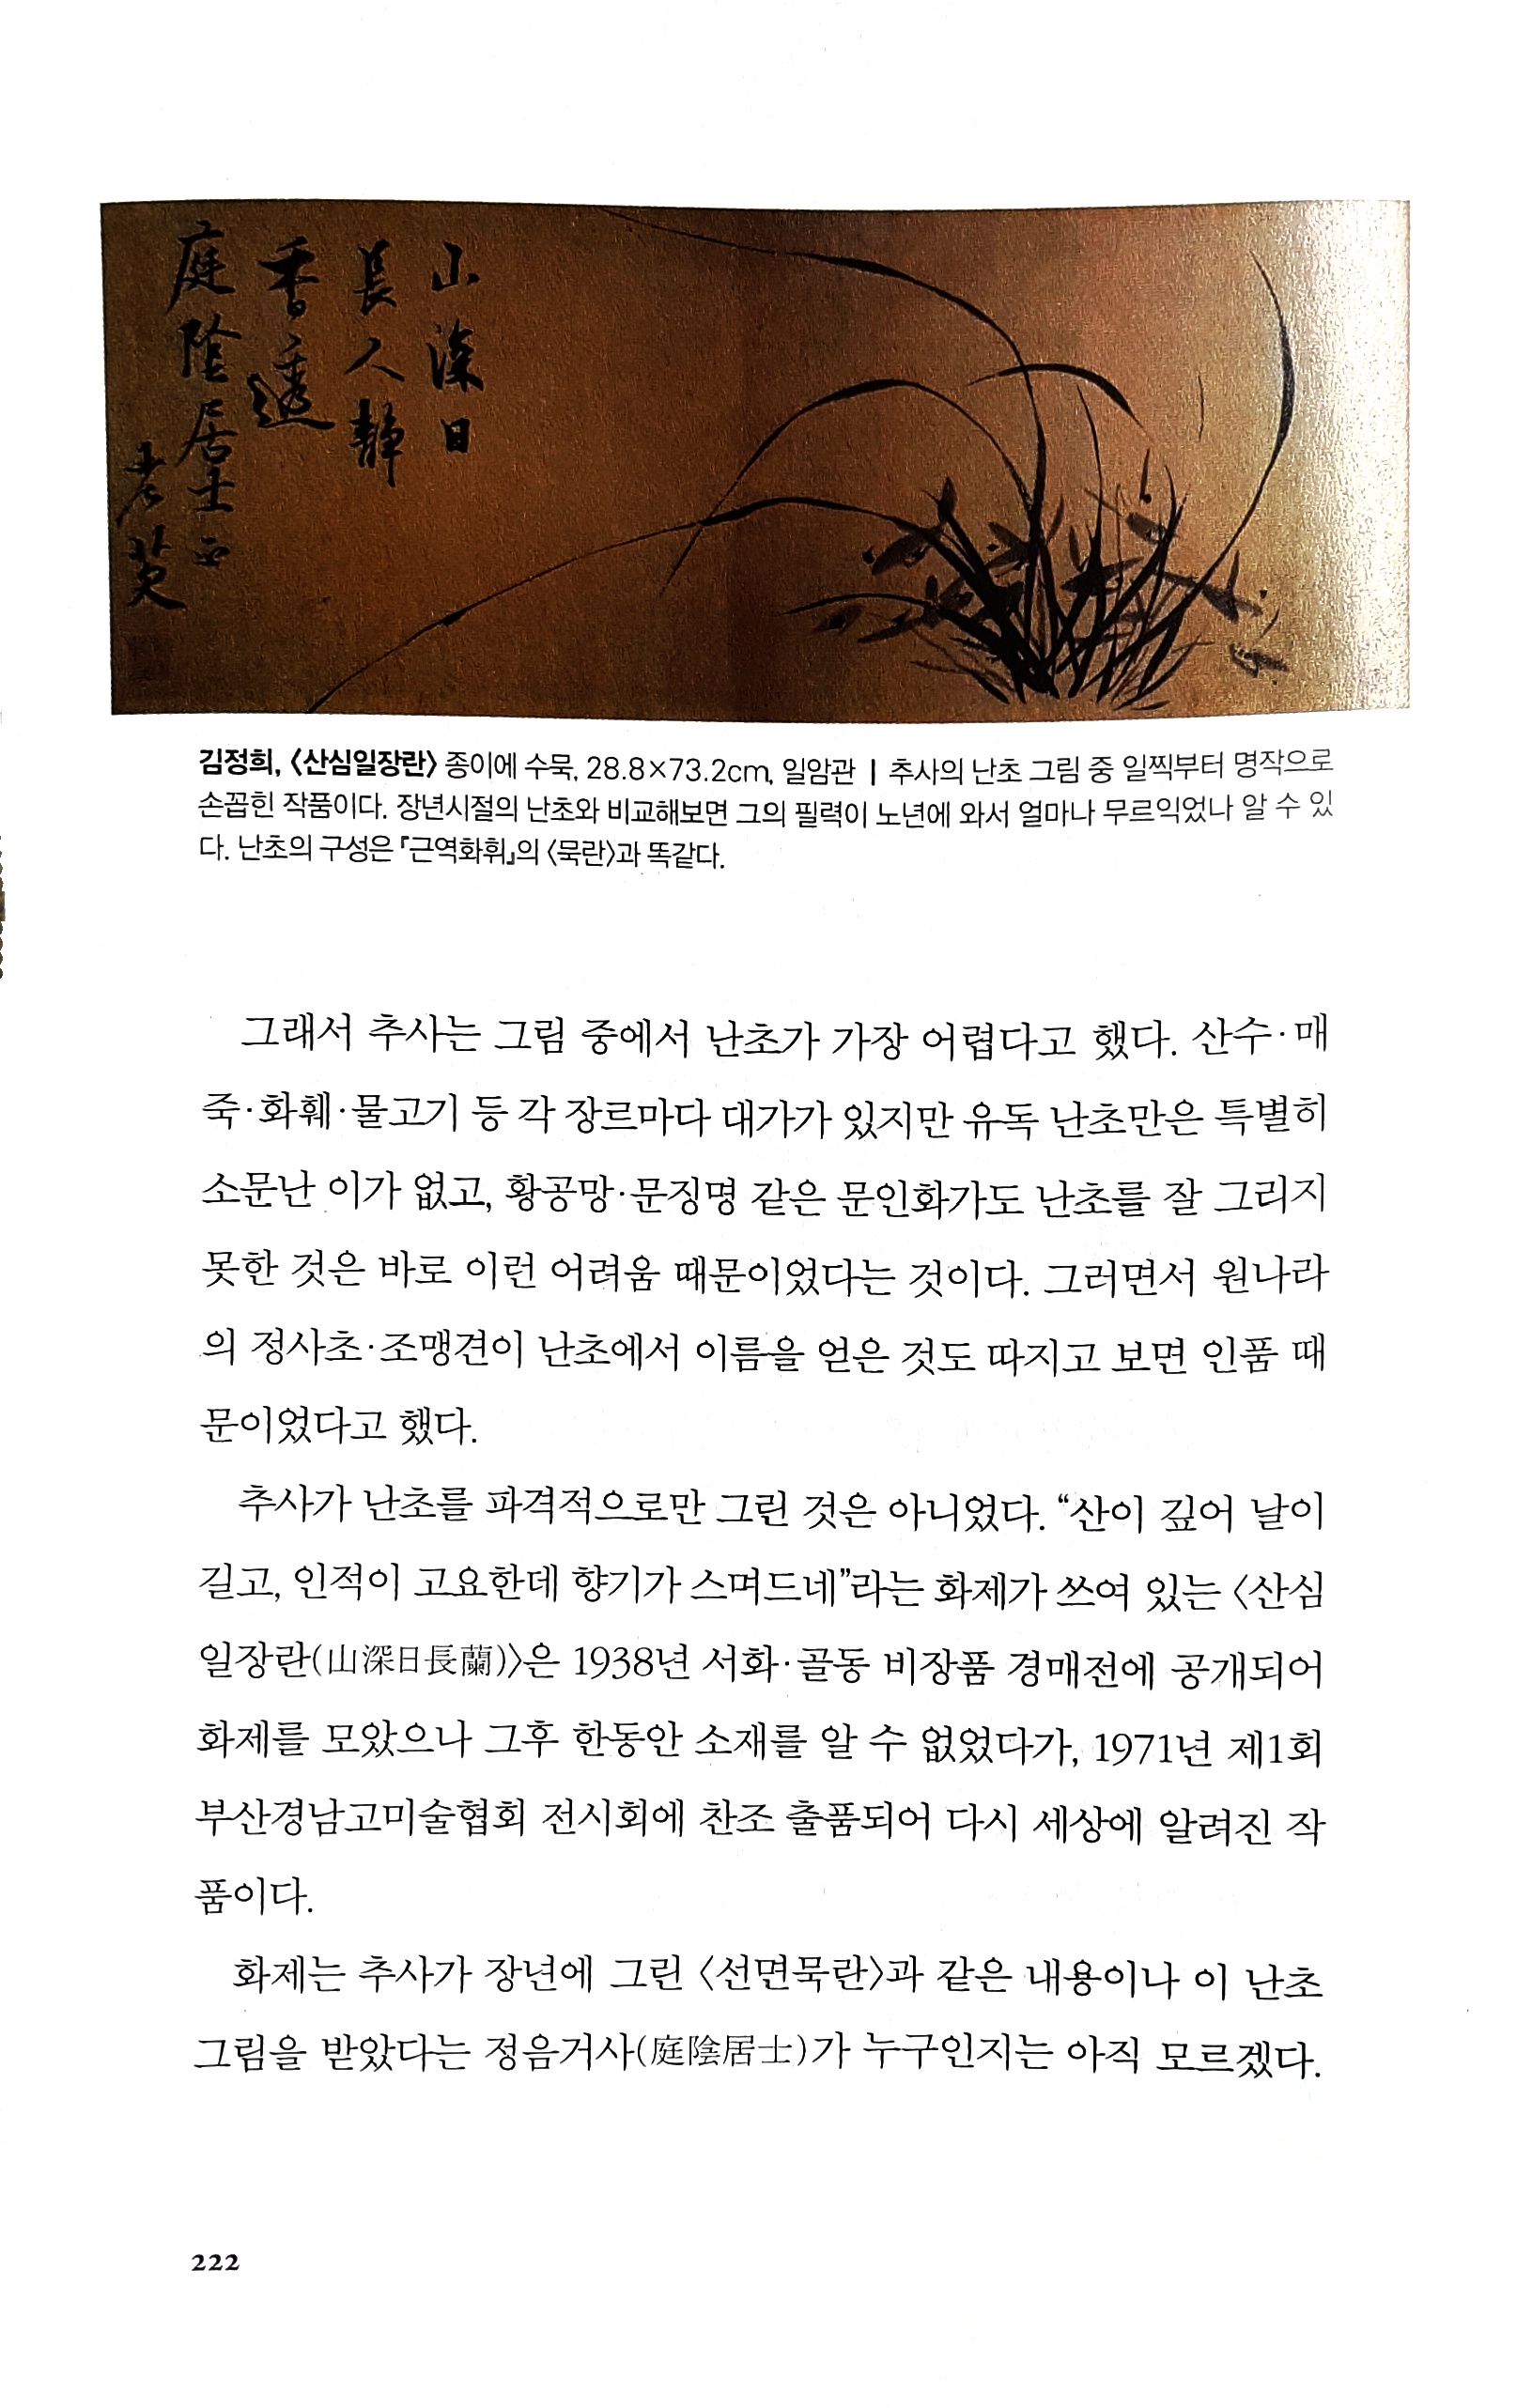 山深日
長人靜
香透
庭陰居士正
老芟
김정희, 〈산심일장란〉 종이에 수묵, 28.8×73.2cm, 일암관 | 추사의 난초 그림 중 일찍부터 명작으로
손꼽힌 작품이다. 장년시절의 난초와 비교해보면 그의 필력이 노년에 와서 얼마나 무르익었나 알 수 있
다. 난초의 구성은 『근역화휘』의 〈묵란〉과 똑같다.
그래서 추사는 그림 중에서 난초가 가장 어렵다고 했다. 산수·매
죽·화훼·물고기 등 각 장르마다 대가가 있지만 유독 난초만은 특별히
소문난 이가 없고, 황공망·문징명 같은 문인화가도 난초를 잘 그리지
못한 것은 바로 이런 어려움 때문이었다는 것이다. 그러면서 원나라
의 정사초·조맹견이 난초에서 이름을 얻은 것도 따지고 보면 인품 때
문이었다고 했다.
추사가 난초를 파격적으로만 그린 것은 아니었다. “산이 깊어 날이
길고, 인적이 고요한데 향기가 스며드네”라는 화제가 쓰여 있는 〈산심
일장란(山深日長蘭)〉은 1938년 서화·골동 비장품 경매전에 공개되어
화제를 모았으나 그후 한동안 소재를 알 수 없었다가, 1971년 제1회
부산경남고미술협회 전시회에 찬조 출품되어 다시 세상에 알려진 작
품이다.
화제는 추사가 장년에 그린 〈선면묵란〉과 같은 내용이나 이 난초
그림을 받았다는 정음거사(庭陰居士)가 누구인지는 아직 모르겠다.
222